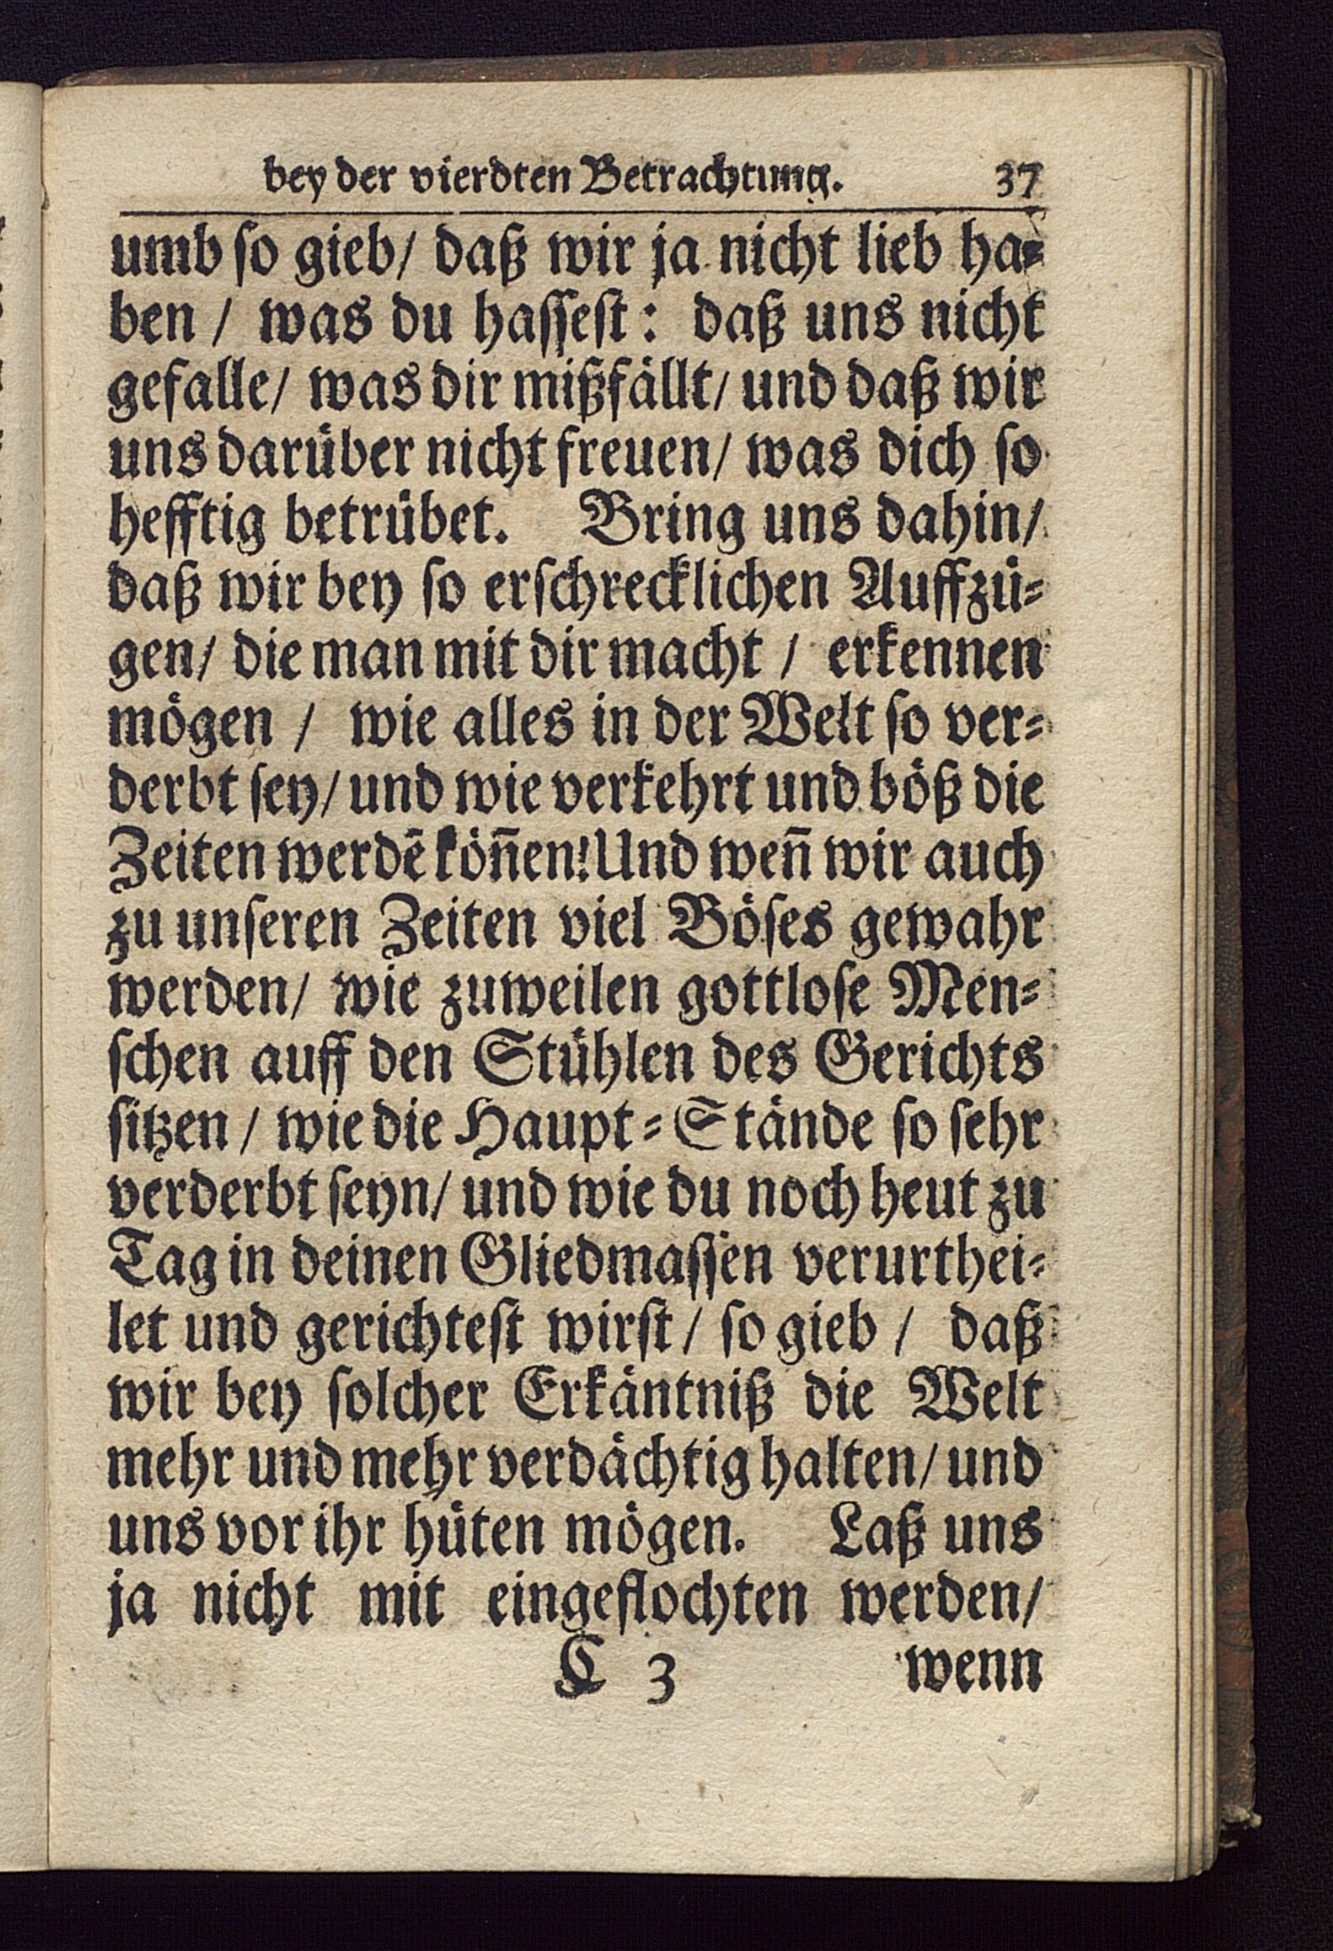 bey der vierdten Betrachtung. 37
umb so gieb/ daß wir ja nicht lieb ha-
ben / was du hassest: daß uns nicht
gefalle/ was dir mißfällt/ und daß wir
uns darüber nicht freuen/ was dich so
hefftig betrübet. Bring uns dahin/
daß wir bey so erschrecklichen Auffzü-
gen/ die man mit dir macht / erkennen
mögen / wie alles in der Welt so ver-
derbt sey/ und wie verkehrt und böß die
Zeiten werdē köñen! Und weñ wir auch
zu unseren Zeiten viel Böses gewahr
werden/ wie zuweilen gottlose Men-
schen auff den Stühlen des Gerichts
sitzen / wie die Haupt-Stände so sehr
verderbt seyn/ und wie du noch heut zu
Tag in deinen Gliedmassen verurthei-
let und gerichtest wirst/ so gieb / daß
wir bey solcher Erkäntniß die Welt
mehr und mehr verdächtig halten/ und
uns vor ihr hüten mögen. Laß uns
ja nicht mit eingeflochten werden/
C 3 wenn